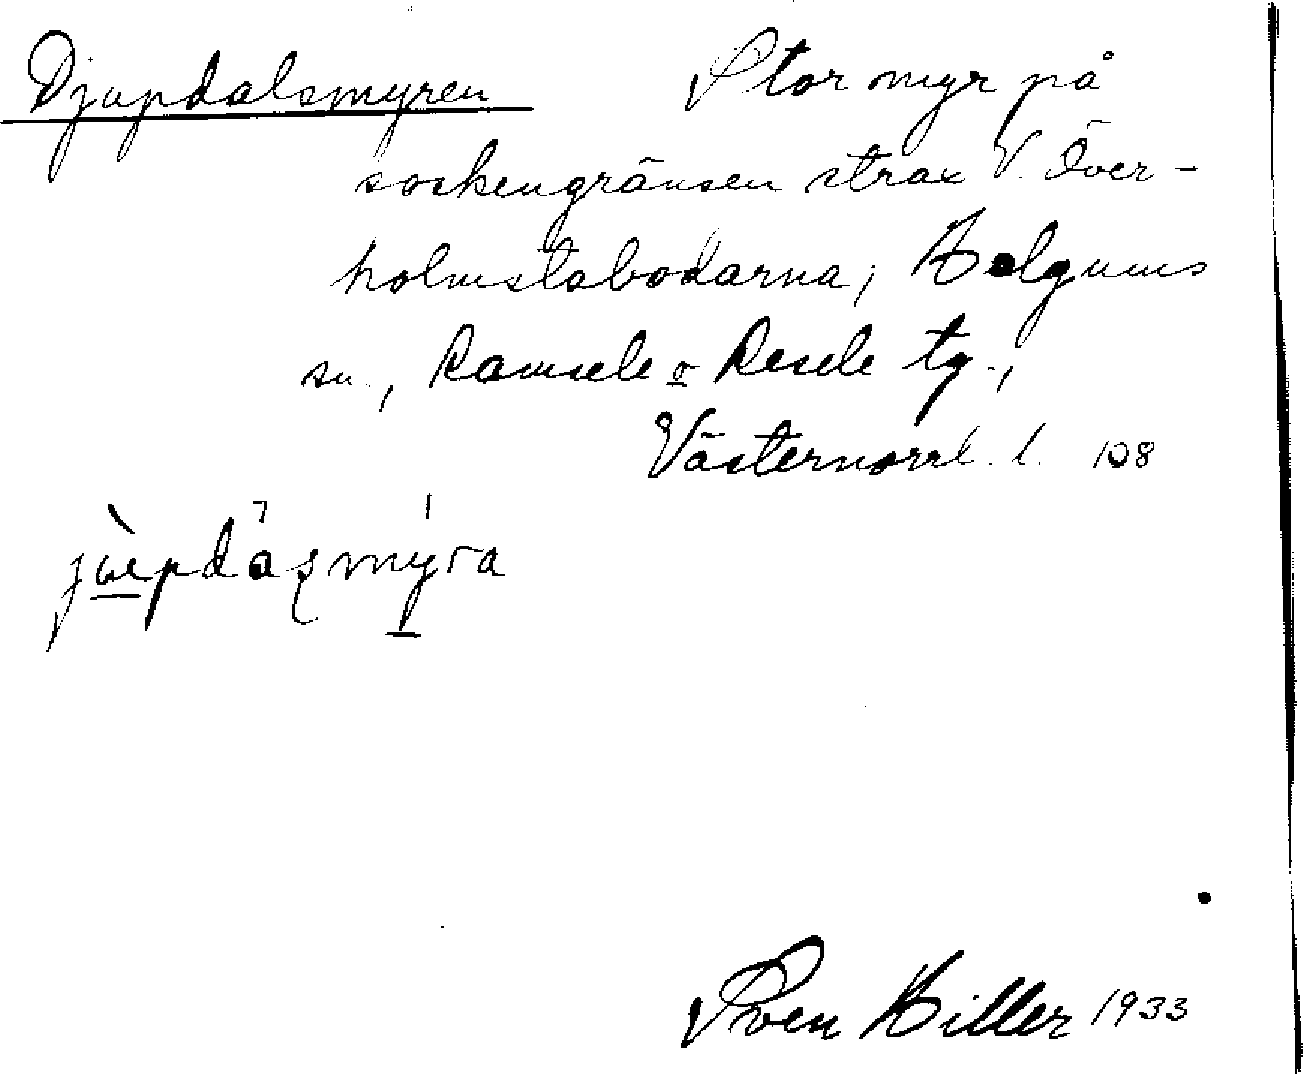 Djupdalsmyren Stor myr på
sockengränsen strax V. Över-
holmstabodarna, Helgums
sn., Ramsele o Resele tg.,
Västernorrl. l. 108
Sven Hiller 1933